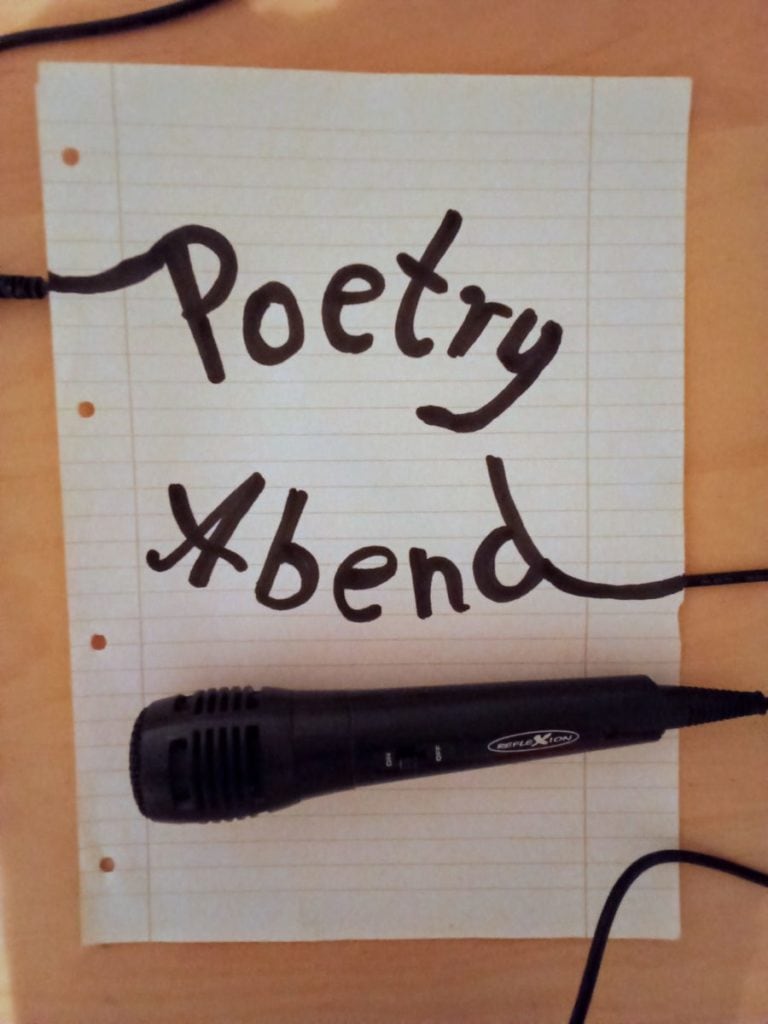 Poetry
Abend
ON OFF
REFLEXION